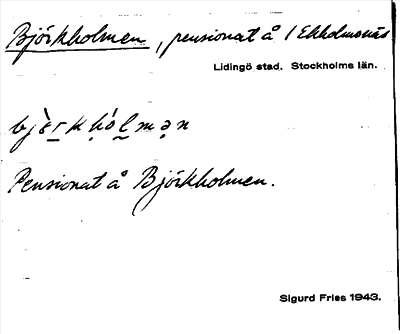 Björkholmen, pensionat å / Ekholmsnäs
Lidingö stad. Stockholms län.
Pensionat å Björkholmen.
Sigurd Fries 1943.